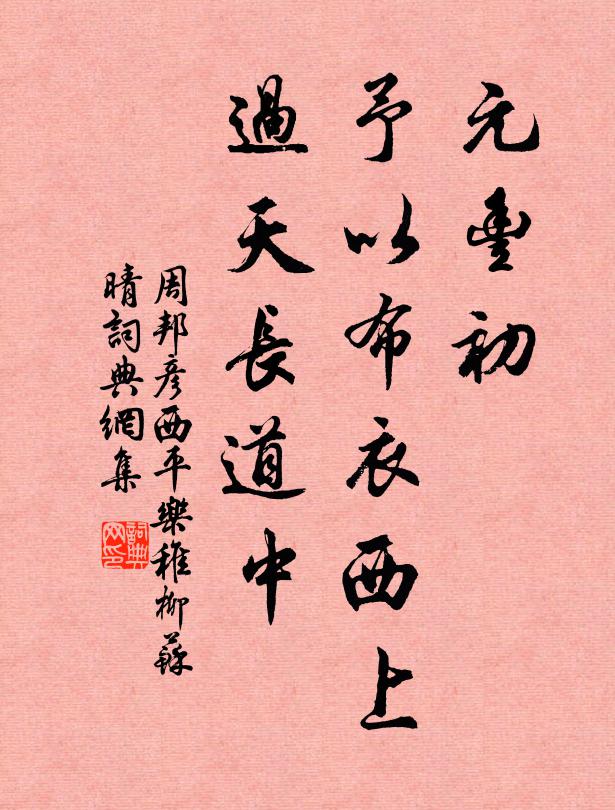 元豐初
予以布衣西上
過天長道中
周邦彦西平樂稚柳蘇
晴詞典網集
詞典网印